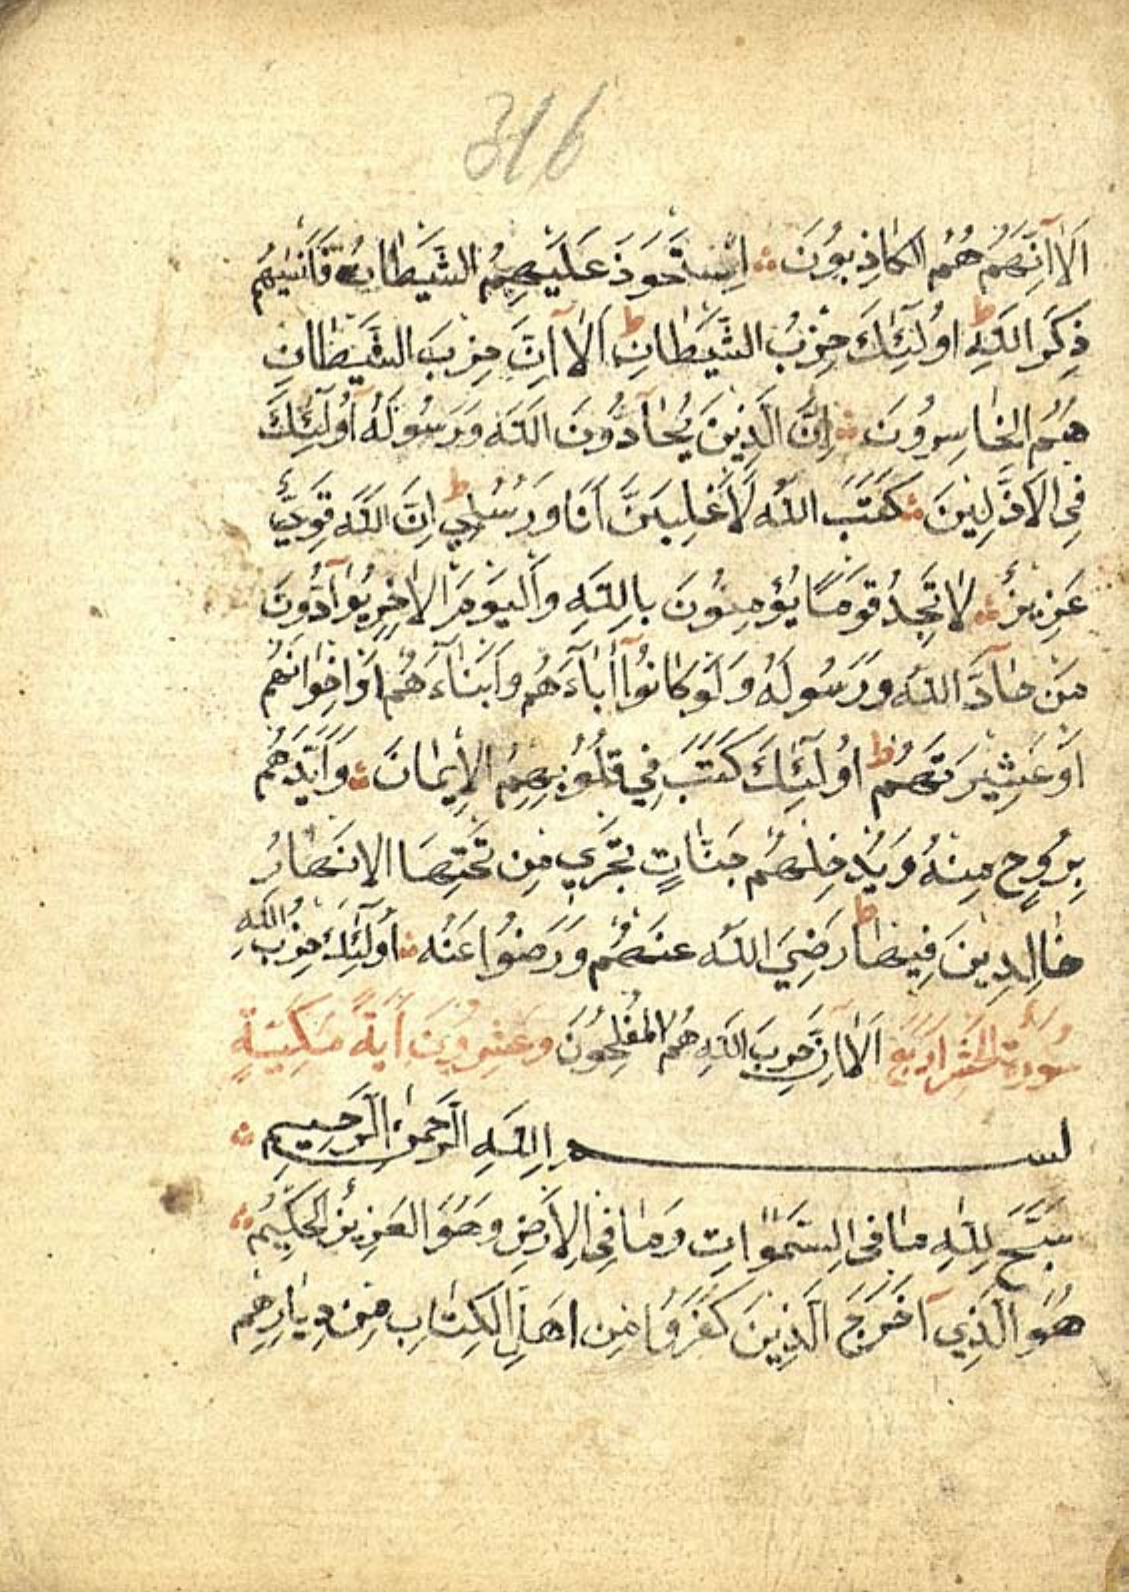 316
اَلَا اِنَّهُمْ هُمُ الْكَاذِبُونَ ؞ اِسْتَحْوَذَ عَلَيْهِمُ الشَّيْطَانُ فَاَنْسٰيهُمْ
ذِكْرَ اللّٰهِ ط اُولٰٓئِكَ حِزْبُ الشَّيْطَانِ ط اَلَا اِنَّ حِزْبَ الشَّيْطَانِ
هُمُ الْخَاسِرُونَ ؞ اِنَّ الَّذِينَ يُحَآدُّونَ اللّٰهَ وَرَسُولَهُ اُولٰٓئِكَ
فِى الْاَذَلِّينَ ؞ كَتَبَ اللّٰهُ لَاَغْلِبَنَّ اَنَا وَرُسُلِي ط اِنَّ اللّٰهَ قَوِيٌّ
عَزِيزٌ ؞ لَا تَجِدُ قَوْمًا يُؤْمِنُونَ بِاللّٰهِ وَالْيَوْمِ الْاٰخِرِ يُوَآدُّونَ
مَنْ حَآدَّ اللّٰهَ وَرَسُولَهُ وَلَوْ كَانُوٓا اٰبَآءَهُمْ وَاَبْنَآءَهُمْ اَوْ اِخْوَانَهُمْ
اَوْ عَشِيرَتَهُمْ ط اُولٰٓئِكَ كَتَبَ فِي قُلُوبِهِمُ الْاِيمَانَ ؞ وَاَيَّدَهُمْ
بِرُوحٍ مِنْهُ وَيُدْخِلُهُمْ جَنَّاتٍ تَجْرِي مِنْ تَحْتِهَا الْاَنْهَارُ
خَالِدِينَ فِيهَا ط رَضِيَ اللّٰهُ عَنْهُمْ وَرَضُوا عَنْهُ ؞ اُولٰٓئِكَ حِزْبُ اللّٰهِ
سُورَةُ الْحَشْرِ اَرْبَعٌ اَلَا اِنَّ حِزْبَ اللّٰهِ هُمُ الْمُفْلِحُونَ وَعِشْرُونَ اٰيَةً مَكِّيَّةٌ
بِسْمِ اللّٰهِ الرَّحْمٰنِ الرَّحِيمِ ؞
سَبَّحَ لِلّٰهِ مَا فِى السَّمٰوَاتِ وَمَا فِى الْاَرْضِ وَهُوَ الْعَزِيزُ الْحَكِيمُ ؞
هُوَ الَّذِي اَخْرَجَ الَّذِينَ كَفَرُوا مِنْ اَهْلِ الْكِتَابِ مِنْ دِيَارِهِمْ